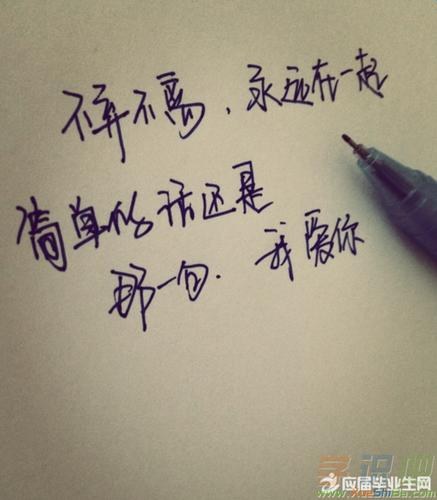 不弃不离，永远在一起
简单的话还是
那一句. 我爱你
学识网
www.XueShiBa.com
应届毕业生网